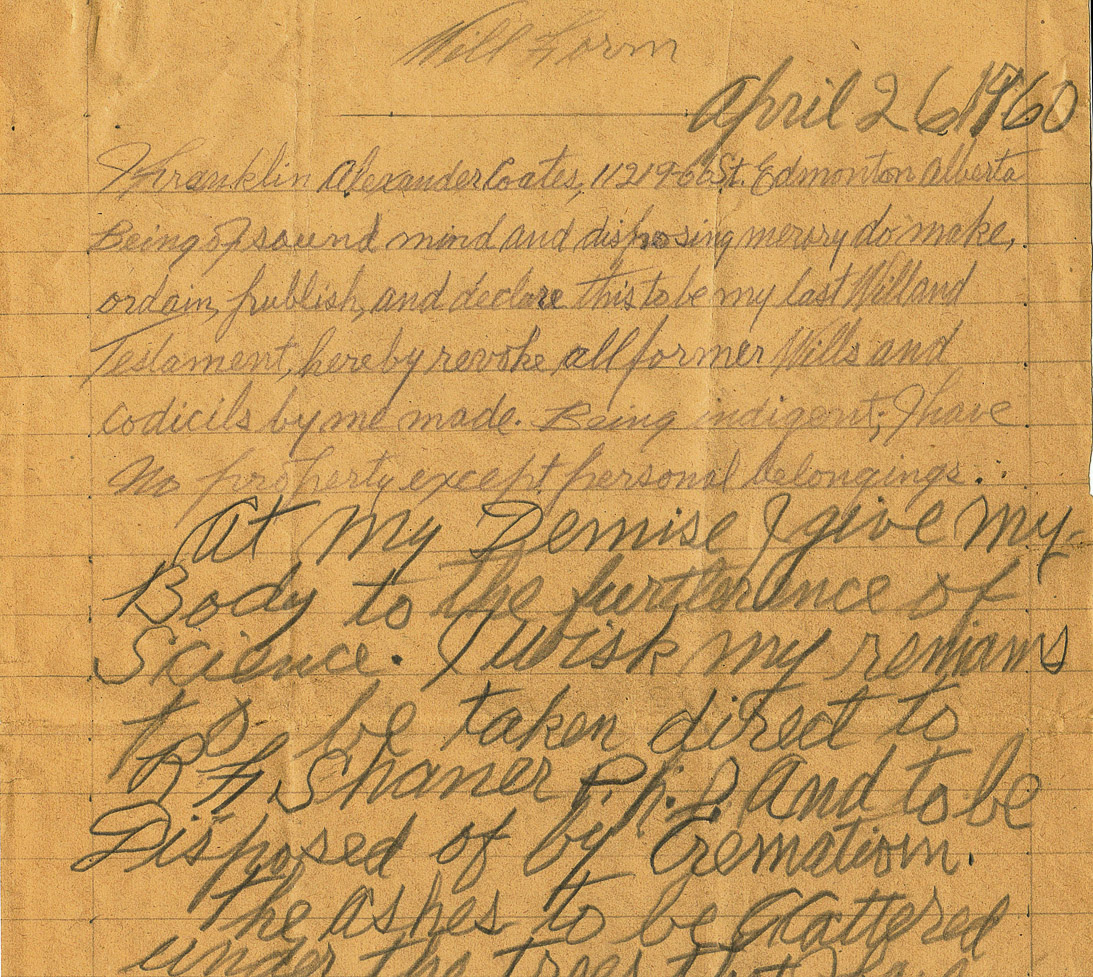 Will Form
April 26 1960
I Franklin Alexander Coates, 11219-66 St. Edmonton Alberta
Being of sound mind and disposing memory do make,
ordain, publish, and declare this to be my last Will and
Testament, hereby revoke all former Wills and
Codicils by me made. Being indigent; I have
No property except personal belongings...
At my Demise I give my
Body to the furtherence of
Science. I wish my remians
to be taken direct to
R F, Shaner P.h.D. And to be
Disposed of by Cremation.
The Ashes to be Scattered
under the Trees that